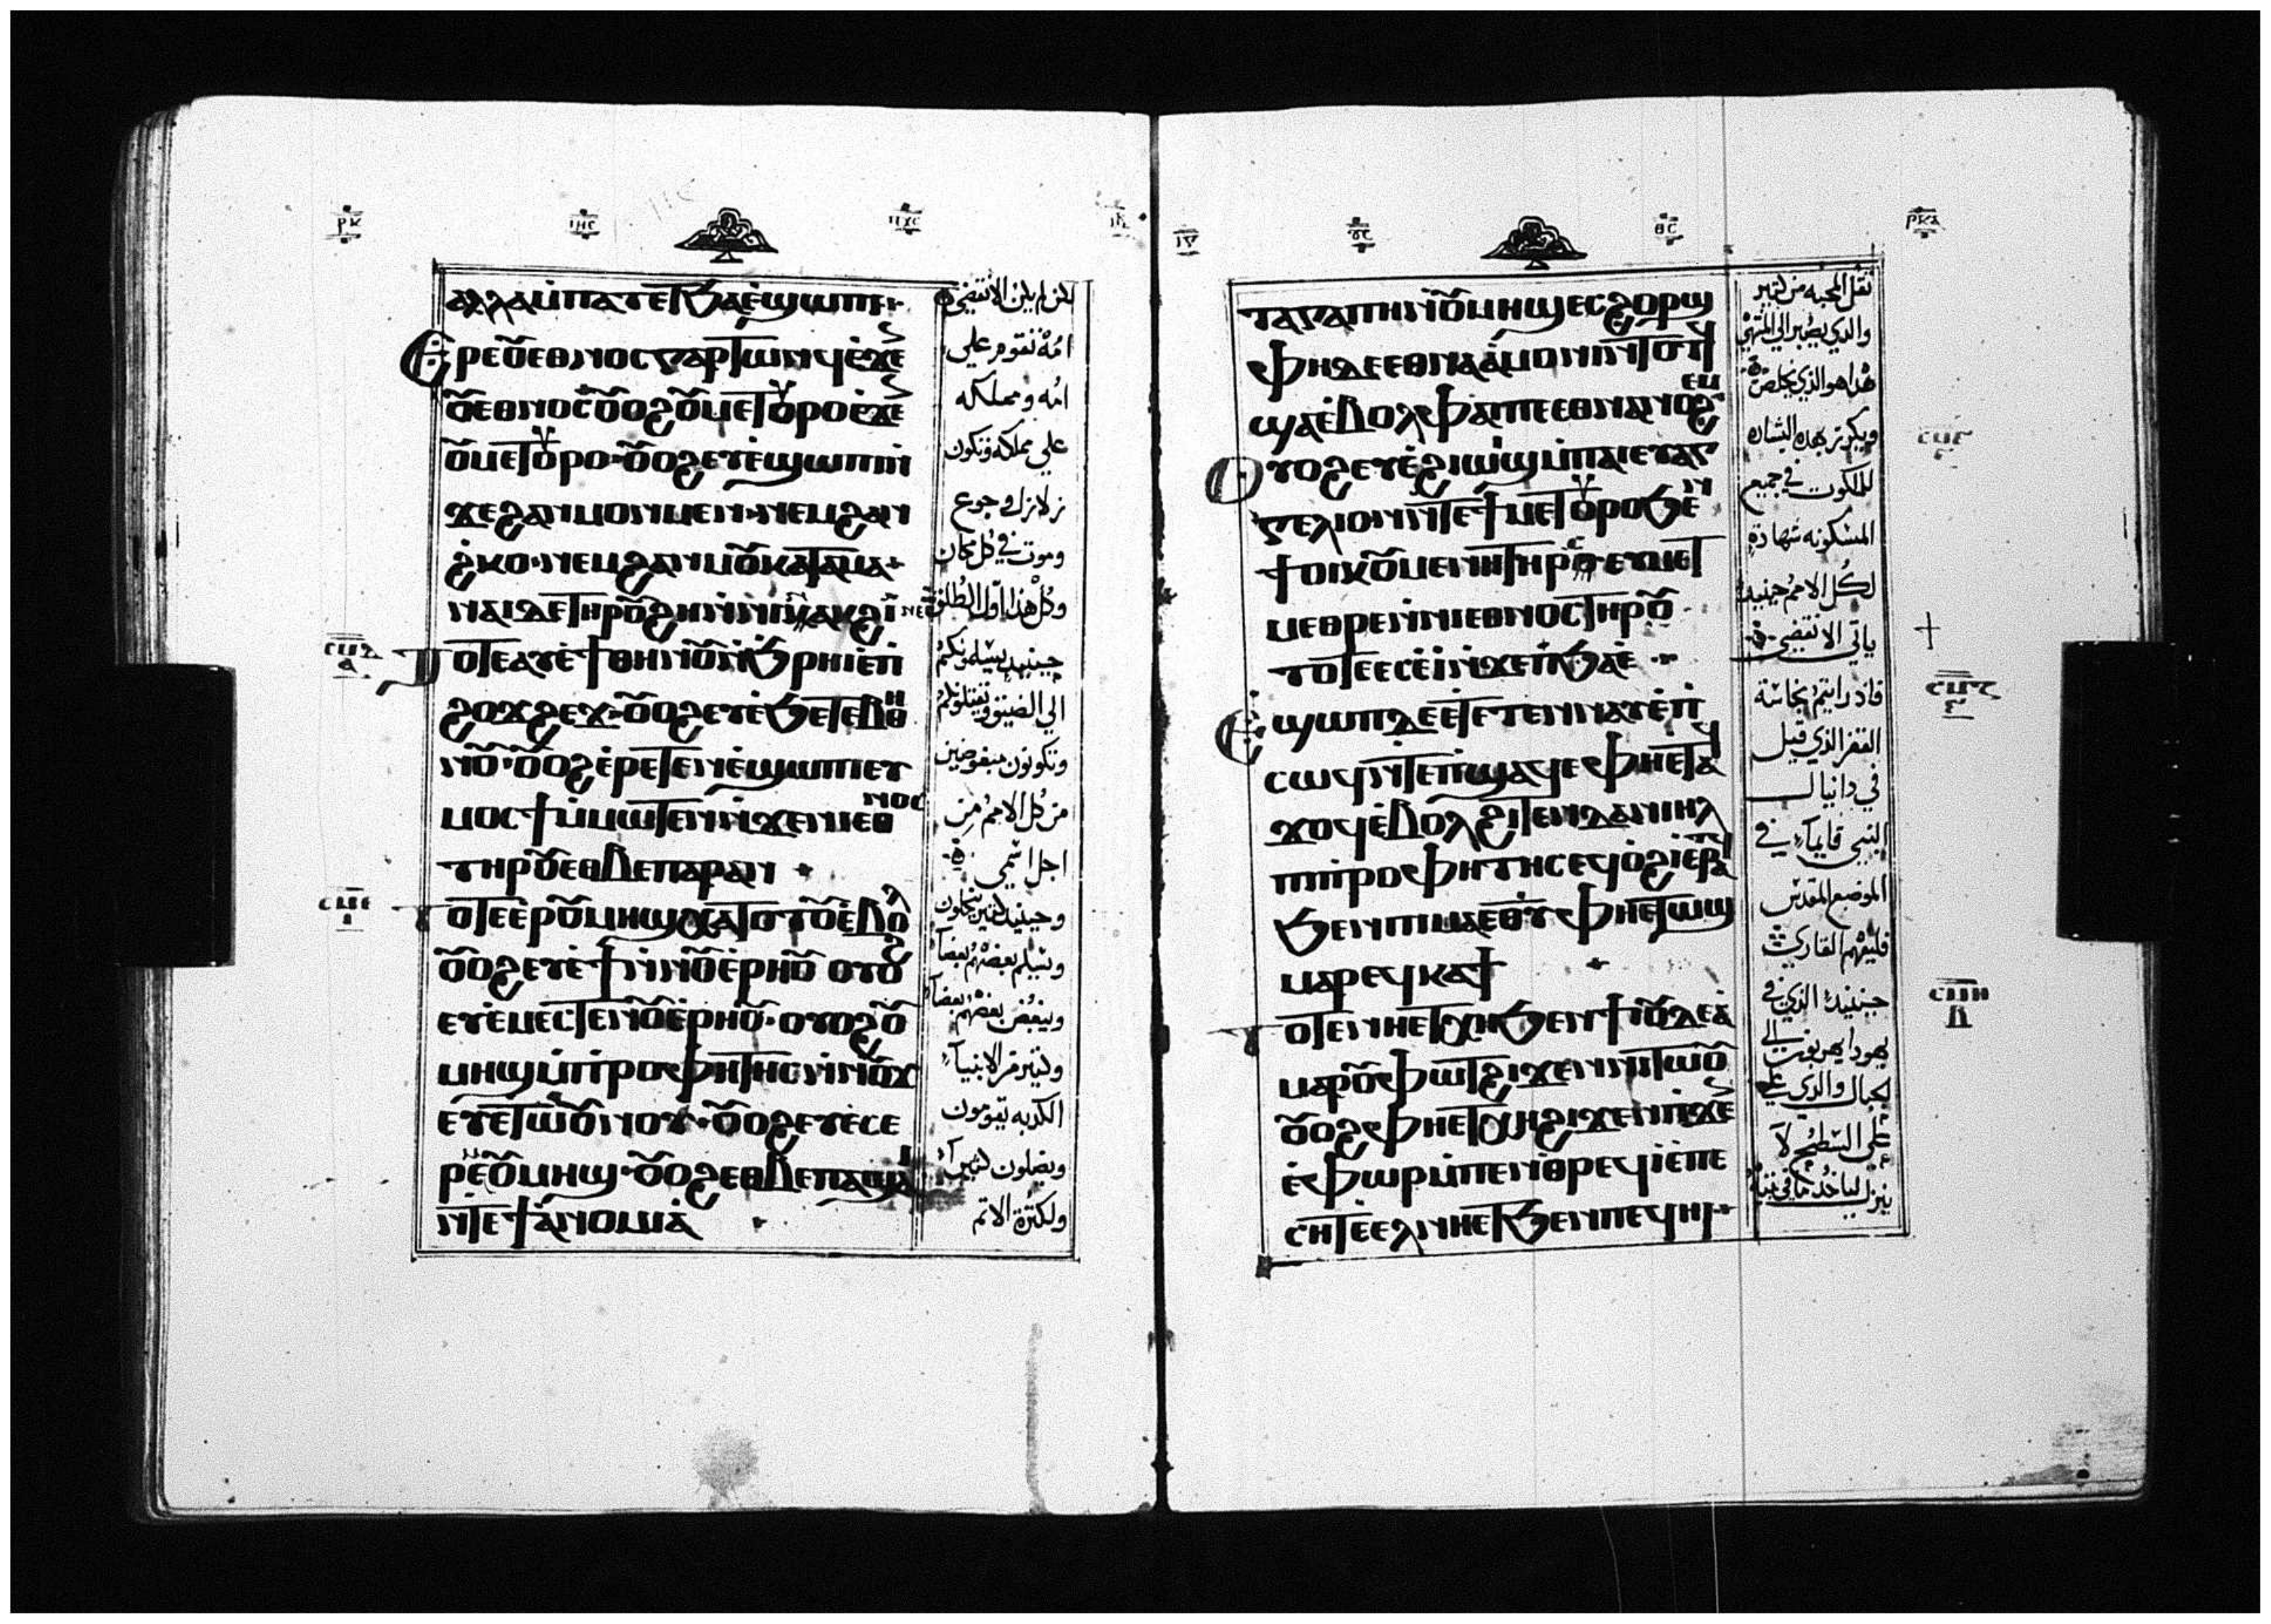 ⲣⲕ ⲓⲏⲥ ⲡⲭⲥ
ⲁⲗⲗⲁ ⲙ̇ⲡⲁⲧⲉⲧϧⲁⲉ̀ϣⲱⲡⲓ
Ⲉⲣⲉⲟⲩⲉⲑⲛⲟⲥ ⲅⲁⲣ ⲧⲱⲛϥ ⲉ̀ϫⲉⲛ
ⲟⲩⲉⲑⲛⲟⲥ ⲟⲩⲟϩ ⲟⲩⲙⲉⲧⲟⲩⲣⲟ ⲉ̀ϫⲉⲛ
ⲟⲩⲙⲉⲧⲟⲩⲣⲟ· ⲟⲩⲟϩ ⲉⲩⲉ̀ϣⲱⲡⲓ ⲛ̇
ϫⲉ ϩⲁⲛⲙⲟⲛⲙⲉⲛ· ⲛⲉⲙ ϩⲁⲛ
ϩ̇ⲕⲟ· ⲛⲉⲙ ϩⲁⲛⲙⲟⲩ ⲕⲁⲧⲁ ⲙⲁ·
ⲛⲁⲓ ⲇⲉ ⲧⲏⲣⲟⲩ ϩⲏ ⲛ̇ⲛⲓⲛⲁⲕϩⲓ ⲛⲉ
Ⲧⲟⲧⲉ ⲉⲩⲉ̀ϯⲑⲏⲛⲟⲩ ⲛ̇ϧⲣⲏⲓ ⲉ̀ⲡ̇
ϩⲟϫϩⲉϫ· ⲟⲩⲟϩ ⲉⲩⲉ̀ϧⲉⲧⲉⲃⲑⲏ
ⲛⲟⲩ· ⲟⲩⲟϩ ⲉ̀ⲣⲉⲧⲉⲛⲉ̀ϣⲱⲡⲓ ⲉⲩ
ⲙⲟⲥϯ ⲙ̇ⲙⲱⲧⲉⲛ ⲛ̇ϫⲉ ⲛⲓⲉⲑⲛⲟⲥ
ⲧⲏⲣⲟⲩ ⲉⲑⲃⲉ ⲡⲁⲣⲁⲛ
ⲧⲟⲧⲉ ⲉ̀ⲣⲟⲩⲙⲏϣ ⲭⲁⲧⲟⲧⲟⲩ ⲉ̀ⲃⲟⲗ
ⲟⲩⲟϩ ⲉⲩⲉ̀ϯ ⲛ̇ⲛⲟⲩⲉ̀ⲣⲏⲟⲩ ⲟⲩⲟϩ
ⲉⲩⲉ̀ⲙⲉⲥⲧⲉ ⲛⲟⲩⲉ̀ⲣⲏⲟⲩ· ⲟⲩⲟϩ ⲟⲩ
ⲙⲏϣ ⲙ̇ⲡⲣⲟⲫⲏⲧⲏⲥ ⲛ̇ⲛⲟⲩϫ
ⲉⲩⲉ̀ⲧⲱⲟⲩⲛⲟⲩ· ⲟⲩⲟϩ ⲉⲩⲉ̀ⲥⲉ
ⲣⲉⲙ ⲟⲩⲙⲏϣ· ⲟⲩⲟϩ ⲉⲑⲃⲉ ⲡⲁϣⲁⲓ
ⲛ̇ⲧⲉ ϯⲁ̀ⲛⲟⲙⲓⲁ̀
ⲥⲙⲇ
ⲁ
ⲥⲙⲉ
ⲓ
لكن لم يكن الانقضى
امه تقوم على
امه ومملكه
على مملكه وتكون
زلازل وجوع
وموت في كل مكان
وكل هذا اول الطلق
حينيد يسلمونكم
الى الضيق ويقتلونكم
وتكونون مبغوضين
من كل الامم من
اجل اسمي
وحينيد كثير يشكون
ويسلم بعضهم بعضاً
ويبغض بعضهم بعضاً
وكثير من الانبياء
الكدبه يقومون
ويضلون كثيراً
ولكثرة الاثم
ⲩⲥ ⲑⲥ ⲣⲕⲁ
ⲧⲁⲅⲁⲡⲏ ⲛ̇ⲟⲩⲙⲏϣ ⲉⲥϩⲟⲣϣ
ⲫⲏ ⲇⲉ ⲉⲑⲛⲁⲁ̀ⲙⲟⲛⲓ ⲛ̇ⲧⲟⲧϥ
ϣⲁⲉ̀ⲃⲟⲗ ⲫⲁⲓ ⲡⲉⲑⲛⲁⲛⲟϩⲉⲙ
Ⲟⲩⲟϩ ⲉⲩⲉ̀ϩⲓⲱⲓϣ ⲙ̇ⲡⲁⲓⲉⲩⲁⲅ
ⲅⲉⲗⲓⲟⲛ ⲛ̇ⲧⲉ ϯⲙⲉⲧⲟⲩⲣⲟ ϧⲉⲛ
ϯⲟⲓⲕⲟⲩⲙⲉⲛⲏ ⲧⲏⲣⲥ ⲉⲩⲙⲉⲧ
ⲙⲉⲑⲣⲉ ⲛ̇ⲛⲓⲉⲑⲛⲟⲥ ⲧⲏⲣⲟⲩ
ⲧⲟⲧⲉ ⲉⲥⲉ̀ⲓ̀ ⲛ̇ϫⲉ ϯϧⲁⲉ̀
Ⲉϣⲱⲡ ⲇⲉ ⲉ̀ⲧⲉⲧⲉⲛⲛⲁⲩ ⲉ̀ⲡ̇
ⲥⲱϥ ⲛ̇ⲧⲉ ⲡ̇ϣⲁϥⲉ ⲫⲏⲉⲧⲁϥ
ϫⲟϥ ⲉ̀ⲃⲟⲗϩⲓⲧⲉⲛ ⲇⲁⲛⲓⲏⲗ
ⲡⲓⲡⲣⲟⲫⲏⲧⲏⲥ ⲉϥⲟ̀ϩⲓ ⲉ̀ⲣⲁⲧϥ
ϧⲉⲛ ⲡⲓⲙⲁ ⲉⲑⲩ ⲫⲏⲉⲧⲱϣ
ⲙⲁⲣⲉϥⲕⲁϯ
ⲧⲟⲧⲉ ⲛⲏⲉⲧⲭⲏ ϧⲉⲛ ϯⲓⲟⲩⲇⲉⲁ̀
ⲙⲁⲣⲟⲩⲫⲱⲧ ϩⲓϫⲉⲛ ⲛⲓⲧⲱⲟⲩ
ⲟⲩⲟϩ ⲫⲏⲉⲧⲭⲏ ϩⲓϫⲉⲛ ⲡⲓϫⲉ
ⲛⲉ̀ⲫⲱⲣ ⲙ̇ⲡⲉⲛⲑⲣⲉϥⲓ̀ ⲉ̀ⲡⲉ
ⲥⲏⲧ ⲉ̀ⲉⲗ ⲛⲏⲉⲧϧⲉⲛ ⲡⲉϥⲏⲓ
تقل المحبه من كثير
والدي يصبر الى المنتهى
هذا هو الذي يخلص
ويكرز بهده البشاره
للملكوت في جميع
المسكونه شهادة
لكل الامم حينيد
ياتي الانقضى
فاذا رايتم نجاسة
القفر الذي قيل
في دانيال
النبي قايماً في
الموضع المقدس
فليفهم القارى
حينيد الذي في
يهودا يهربون الى
الجبال والذي
على السطح لا
ينزل لياخد ما في بيته
ⲥⲙⲋ
ⲥⲙⲍ
ⲥⲙⲏ
ⲃ